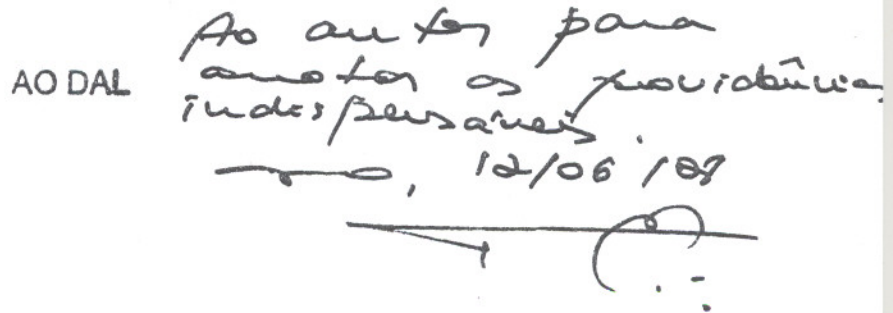 Ao autor para
AO DAL anotar as providências
indispensáveis.
12/06/87